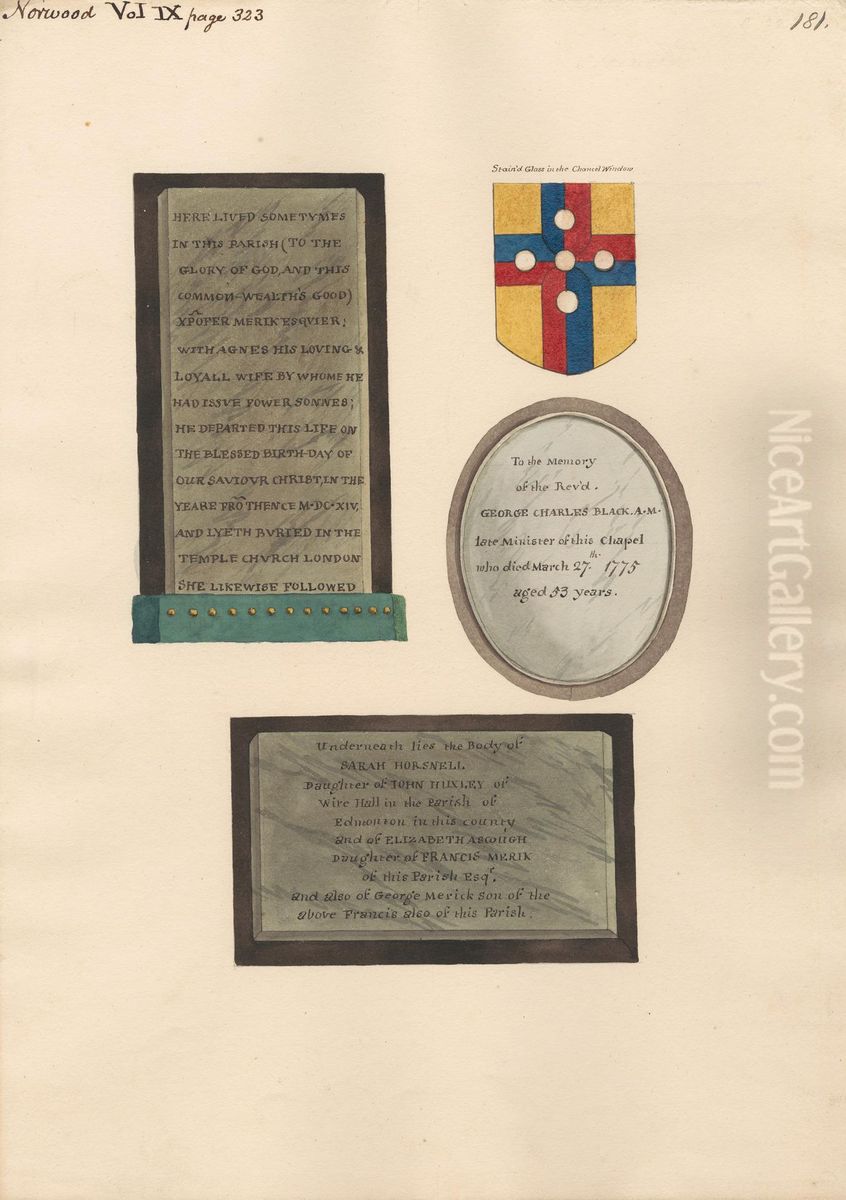 Norwood Vol IX page 323
181.
HERE LIVED SOMETYMES
IN THIS PARISH (TO THE
GLORY OF GOD, AND THIS
COMMON-WEALTH'S GOOD)
XP̃OFER MERIK ESQVIER;
WITH AGNES HIS LOVING &
LOYALL WIFE BY WHOME HE
HAD ISSVE FOWER SONNES;
HE DEPARTED THIS LIFE ON
THE BLESSED BIRTH-DAY OF
OUR SAVIOVR CHRIST, IN THE
YEARE FRÕ THENCE M·DC·XIV,
AND LYETH BVRIED IN THE
TEMPLE CHVRCH LONDON
SHE LIKEWISE FOLLOWED
Stain'd Glass in the Chancel Window
To the Memory
of the Rev'd.
GEORGE CHARLES BLACK.A.M.
late Minister of this Chapel
who died March 27th. 1775
aged 53 years.
Underneath lies the Body of
SARAH HORSNELL
Daughter of JOHN HUXLEY of
Wire Hall in the Parish of
Edmonton in this county
and of ELIZABETH ASCOUGH
Daughter of FRANCIS MERIK
of this Parish Esqr.
and also of George Merick son of the
above Francis also of this Parish.
NiceArtGallery.com